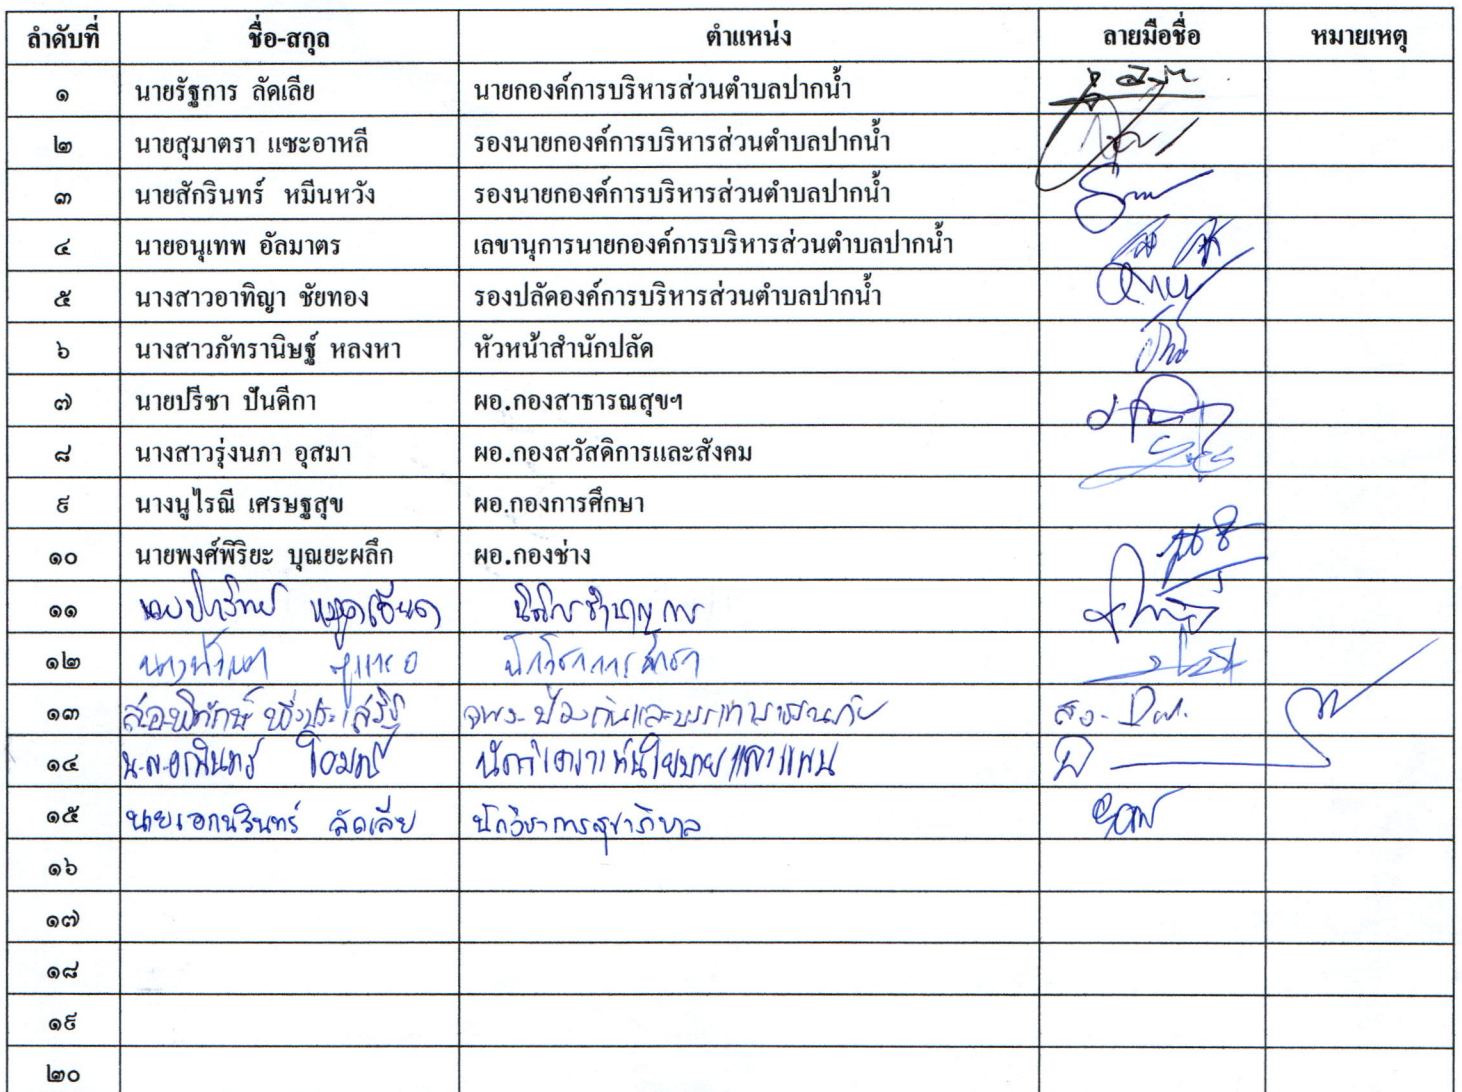 ลำดับที่ ชื่อ-สกุล ตำแหน่ง ลายมือชื่อ หมายเหตุ
๑ นายรัฐการ ลัดเลีย นายกองค์การบริหารส่วนตำบลปากน้ำ
๒ นายสุมาตรา แซะอาหลี รองนายกองค์การบริหารส่วนตำบลปากน้ำ
๓ นายสักรินทร์ หมีนหวัง รองนายกองค์การบริหารส่วนตำบลปากน้ำ
๔ นายอนุเทพ อัลมาตร เลขานุการนายกองค์การบริหารส่วนตำบลปากน้ำ
๕ นางสาวอาทิญา ชัยทอง รองปลัดองค์การบริหารส่วนตำบลปากน้ำ
๖ นางสาวภัทรานิษฐ์ หลงหา หัวหน้าสำนักปลัด
๗ นายปรีชา ปันดีกา ผอ.กองสาธารณสุขฯ
๘ นางสาวรุ่งนภา อุสมา ผอ.กองสวัสดิการและสังคม
๙ นางนูไรณี เศรษฐสุข ผอ.กองการศึกษา
๑๐ นายพงศ์พิริยะ บุณยะผลึก ผอ.กองช่าง
๑๑ นิติกรชำนาญการ
๑๒
๑๓ จพง.ป้องกันและบรรเทาสาธารณภัย
๑๔ นักวิเคราะห์นโยบายและแผน
๑๕ นายเอกนรินทร์ ลัดเลีย นักวิชาการสุขาภิบาล
๑๖
๑๗
๑๘
๑๙
๒๐